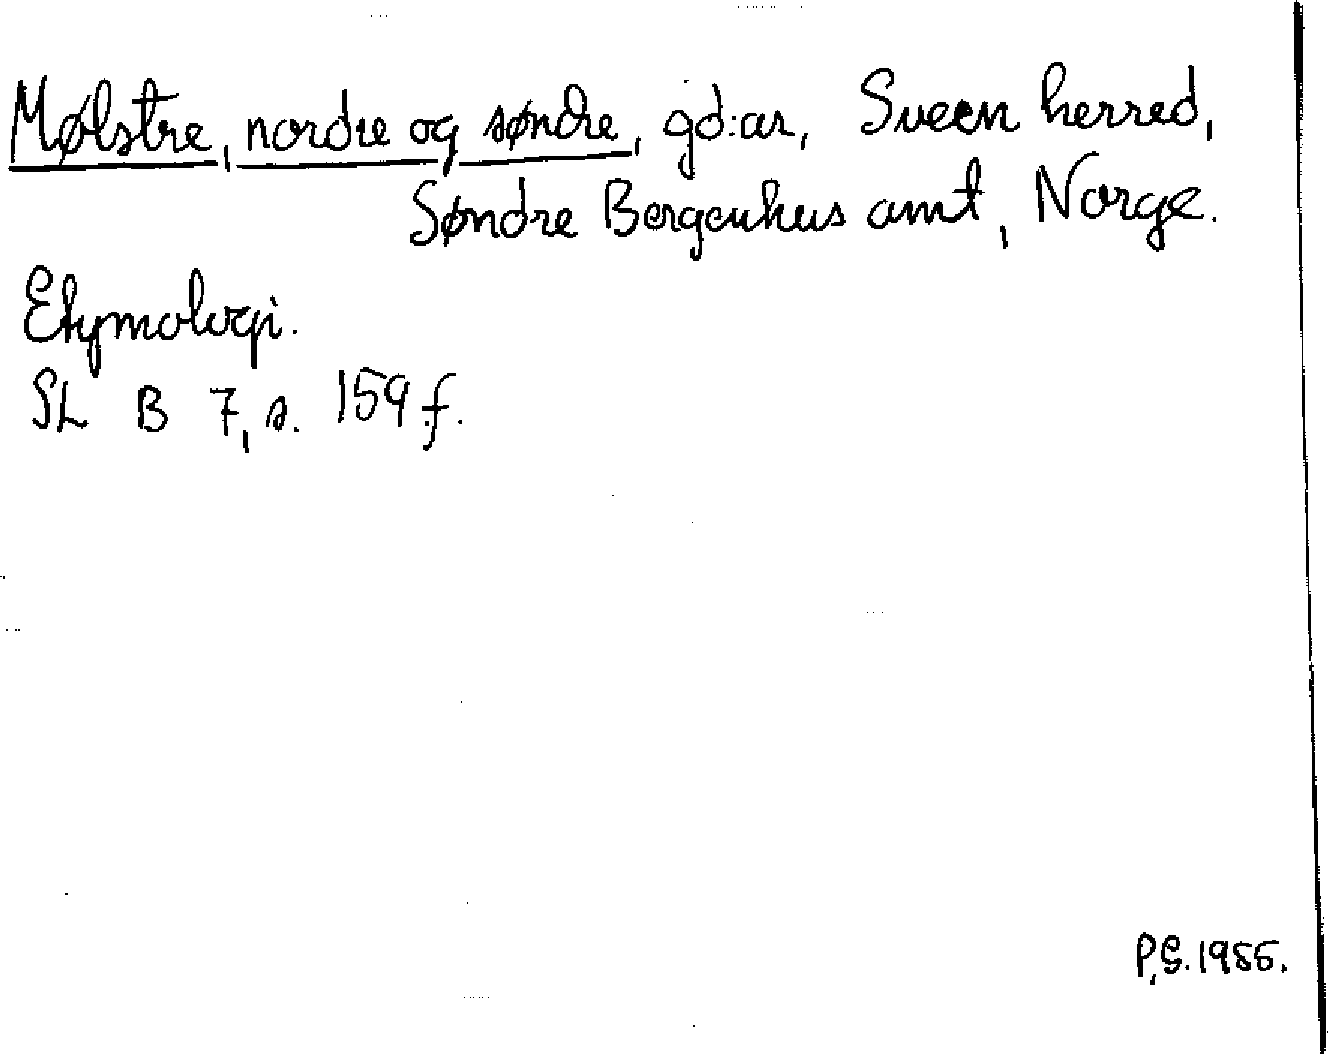 Mølstre, nordre og søndre, gd:ar, Sveen herred,
Søndre Bergenhus amt, Norge.
Etymologi.
SL B 7, s. 159 f.
P.G. 1955.